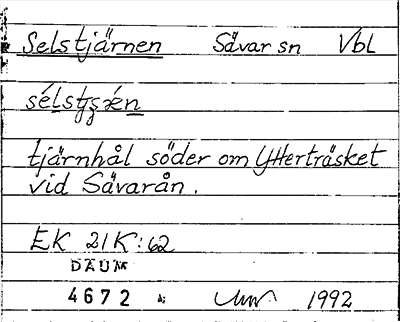 Selstjärnen Sävar sn Vbl
tjärnhål söder om Ytterträsket
vid Sävarån.
EK 21K:62
DAUM
4672 A:
1992